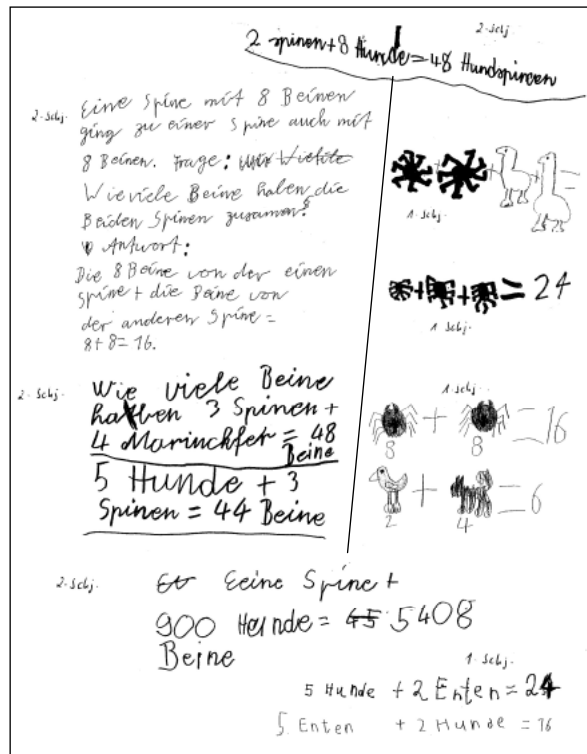 2-Schj.
2 spinen+8 Hunde=48 Hundspinen
2-Schj.
Eine Spine mit 8 Beinen
ging zu einer Spine auch mit
8 Beinen. Frage:
Wieviele Beine haben die
Beiden Spinen zusamen?
Antwort:
Die 8 Beine von der einen
Spine + die Beine von
der anderen Spine =
8+8=16.
+ + + =
1-Schj.
+ + = 24
1 Schj.
2-Schj.
Wie viele Beine
haben 3 Spinen +
4 Marinckfer = 48
Beine
5 Hunde + 3
Spinen = 44 Beine
1-Schj.
+ = 16
8 8
+ = 6
2 4
2-Schj.
Eeine Spine +
900 Hunde = 45 5408
Beine
1-Schj.
5 Hunde + 2 Enten = 24
5 Enten + 2 Hunde = 18